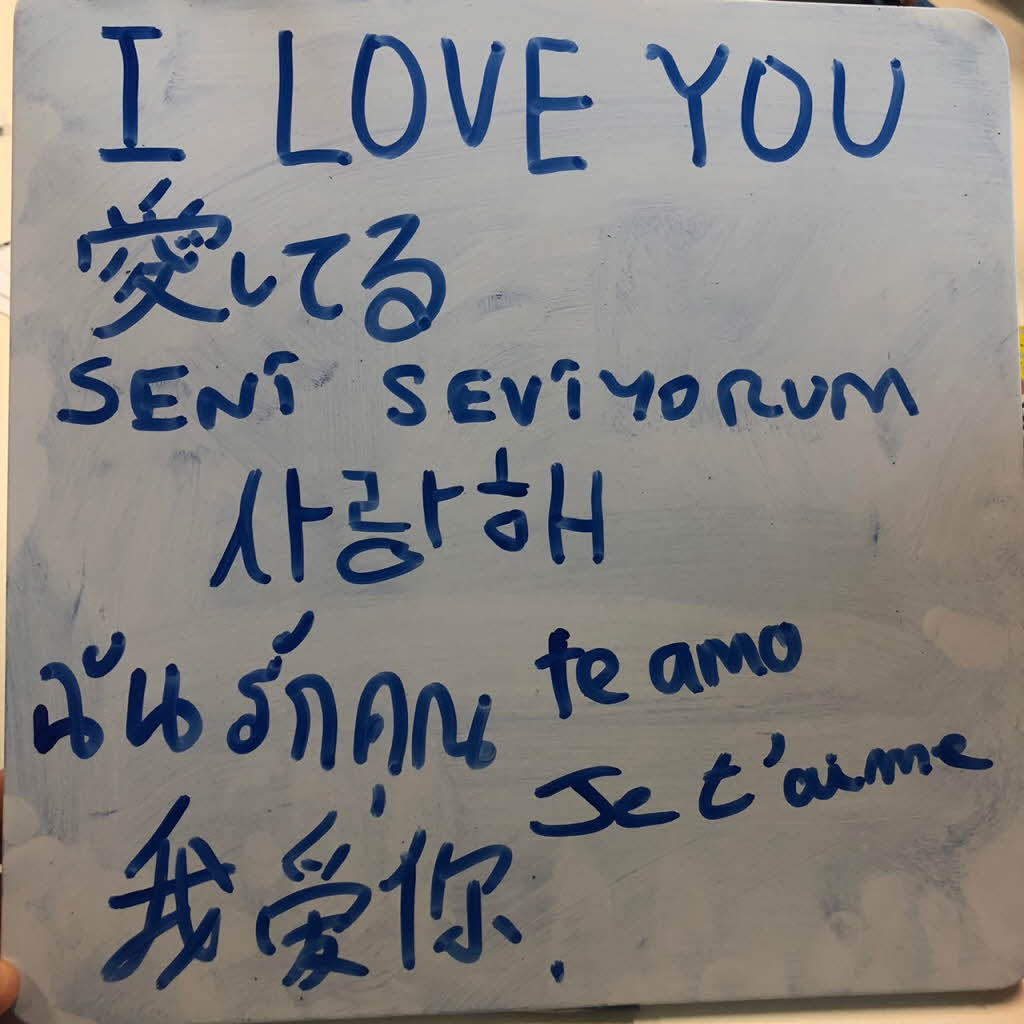 I LOVE YOU
愛してる
SENİ SEVİYORUM
사랑해
ฉันรักคุณ
te amo
Je t'aime
我爱你.